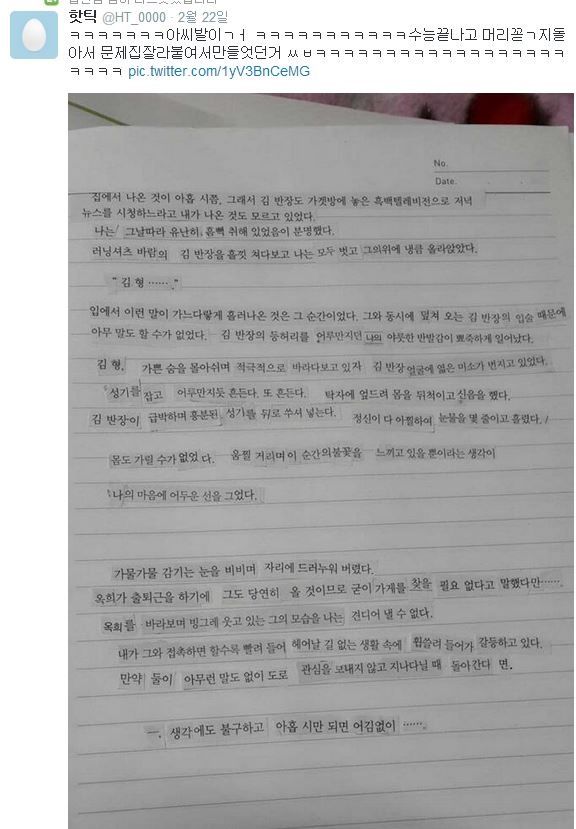 핫틱 @HT_0000 · 2월 22일
ㅋㅋㅋㅋㅋㅋㅋ아씨발이ㄱㅓ ㅋㅋㅋㅋㅋㅋㅋㅋㅋㅋㅋ수능끝나고 머리꼳ㄱ지돌
아서 문제집잘라붙여서만들엇던거 ㅆㅂㅋㅋㅋㅋㅋㅋㅋㅋㅋㅋㅋㅋㅋㅋㅋㅋㅋㅋ
ㅋㅋㅋㅋ pic.twitter.com/1yV3BnCeMG
No.
Date.
집에서 나온 것이 아홉 시쯤, 그래서 김 반장도 가겟방에 놓은 흑백텔레비전으로 저녁
뉴스를 시청하느라고 내가 나온 것도 모르고 있었다.
나는 그날따라 유난히, 흠뻑 취해 있었음이 분명했다.
러닝셔츠 바람의 김 반장을 흘낏 쳐다보고 나는 모두 벗고 그의위에 냉큼 올라앉았다.
“ 김 형 ……. ”
입에서 이런 말이 가느다랗게 흘러나온 것은 그 순간이었다. 그와 동시에 덮쳐 오는 김 반장의 입술 때문에
아무 말도 할 수가 없었다. 김 반장의 등허리를 어루만지던 나의 야릇한 반발감이 뾰죽하게 일어났다.
김 형. 가쁜 숨을 몰아쉬며 적극적으로 바라다보고 있자 김 반장 얼굴에 엷은 미소가 번지고 있었다.
성기를 잡고 어루만지듯 흔든다. 또 흔든다. 탁자에 엎드려 몸을 뒤척이고 신음을 했다.
김 반장이 급박하며 흥분된 성기를 뒤로 쑤셔 넣는다. 정신이 다 아찔하여 눈물을 몇 줄이고 흘렸다. /
몸도 가릴 수가 없었 다. 움찔 거리며 이 순간의불꽃을 느끼고 있을 뿐이라는 생각이
나의 마음에 어두운 선을 그었다.
가물가물 감기는 눈을 비비며 자리에 드러누워 버렸다.
옥희가 출퇴근을 하기에 그도 당연히 올 것이므로 굳이 가게를 찾을 필요 없다고 말했다만…….
옥희를 바라보며 빙그레 웃고 있는 그의 모습을 나는 견디어 낼 수 없다.
내가 그와 접촉하면 할수록 빨려 들어 헤어날 길 없는 생활 속에 휩쓸려 들어가 갈등하고 있다.
만약 둘이 아무런 말도 없이 도로 관심을 보내지 않고 지나다닐 때 돌아간다 면.
—. 생각에도 불구하고 아홉 시만 되면 어김없이 …….